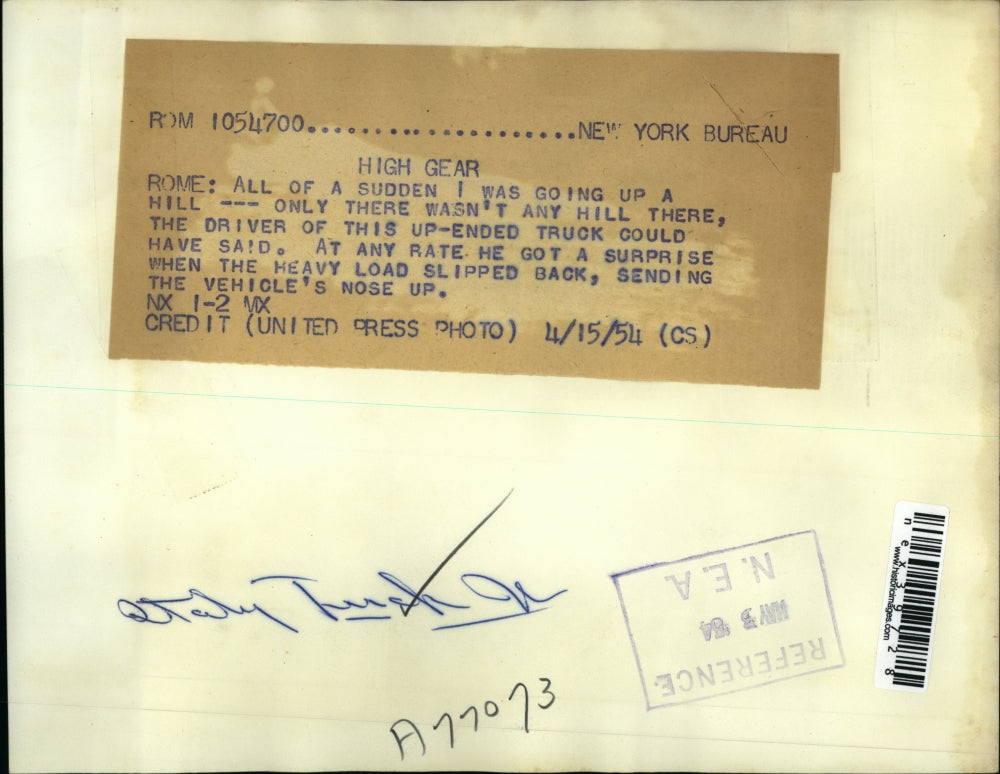 ROM 1054700......................NEW YORK BUREAU
HIGH GEAR
ROME: ALL OF A SUDDEN I WAS GOING UP A
HILL --- ONLY THERE WASN'T ANY HILL THERE,
THE DRIVER OF THIS UP-ENDED TRUCK COULD
HAVE SAID. AT ANY RATE HE GOT A SURPRISE
WHEN THE HEAVY LOAD SLIPPED BACK, SENDING
THE VEHICLE'S NOSE UP.
NX 1-2 MX
CREDIT (UNITED PRESS PHOTO) 4/15/54 (CS)
N.E.A
MAY 3 '54
REFERENCE
A77073
nex39728
www.historicimages.com